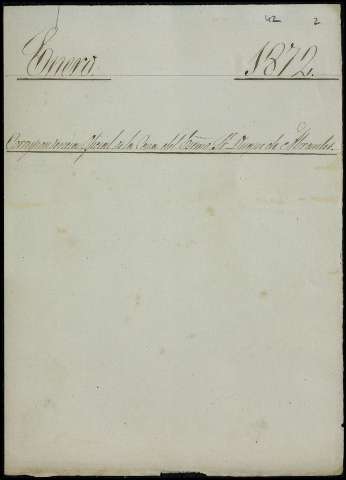 42 2
Enero 1872.
Correspondencia Oficial de la Casa del Excmo Sr Duque de Abrantes.